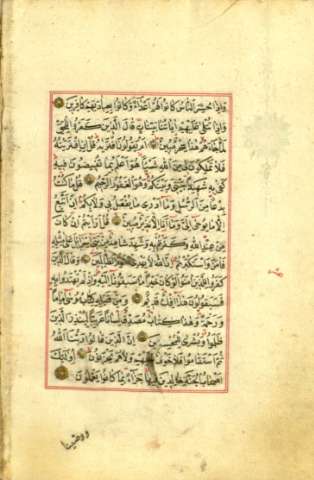 وَاِذَا حُشِرَ النَّاسُ كَانُوا لَهُمْ اَعْدَاءً وَكَانُوا بِعِبَادَتِهِمْ كَافِرِينَ
وَاِذَا تُتْلَى عَلَيْهِمْ اٰيَاتُنَا بَيِّنَاتٍ قَالَ الَّذِينَ كَفَرُوا لِلْحَقِّ
لَمَّا جَاءَهُمْ هٰذَا سِحْرٌ مُبِينٌ اَمْ يَقُولُونَ افْتَرٰيهُ قُلْ اِنِ افْتَرَيْتُهُ
فَلَا تَمْلِكُونَ لِي مِنَ اللّٰهِ شَيْئًا هُوَ اَعْلَمُ بِمَا تُفِيضُونَ فِيهِ
كَفٰى بِهِ شَهِيدًا بَيْنِي وَبَيْنَكُمْ وَهُوَ الْغَفُورُ الرَّحِيمُ قُلْ مَا كُنْتُ
بِدْعًا مِنَ الرُّسُلِ وَمَا اَدْرِي مَا يُفْعَلُ بِي وَلَا بِكُمْ اِنْ اَتَّبِعُ
اِلَّا مَا يُوحٰى اِلَيَّ وَمَا اَنَا اِلَّا نَذِيرٌ مُبِينٌ قُلْ اَرَاَيْتُمْ اِنْ كَانَ
مِنْ عِنْدِ اللّٰهِ وَكَفَرْتُمْ بِهِ وَشَهِدَ شَاهِدٌ مِنْ بَنِي اِسْرَائِيلَ عَلٰى مِثْلِهِ
فَاٰمَنَ وَاسْتَكْبَرْتُمْ اِنَّ اللّٰهَ لَا يَهْدِي الْقَوْمَ الظَّالِمِينَ وَقَالَ الَّذِينَ
كَفَرُوا لِلَّذِينَ اٰمَنُوا لَوْ كَانَ خَيْرًا مَا سَبَقُونَا اِلَيْهِ وَاِذْ لَمْ يَهْتَدُوا بِهِ
فَسَيَقُولُونَ هٰذَا اِفْكٌ قَدِيمٌ وَمِنْ قَبْلِهِ كِتَابُ مُوسٰى اِمَامًا
وَرَحْمَةً وَهٰذَا كِتَابٌ مُصَدِّقٌ لِسَانًا عَرَبِيًّا لِيُنْذِرَ الَّذِينَ
ظَلَمُوا وَبُشْرٰى لِلْمُحْسِنِينَ اِنَّ الَّذِينَ قَالُوا رَبُّنَا اللّٰهُ
ثُمَّ اسْتَقَامُوا فَلَا خَوْفٌ عَلَيْهِمْ وَلَا هُمْ يَحْزَنُونَ اُولٰئِكَ
اَصْحَابُ الْجَنَّةِ خَالِدِينَ فِيهَا جَزَاءً بِمَا كَانُوا يَعْمَلُونَ
ووصينا